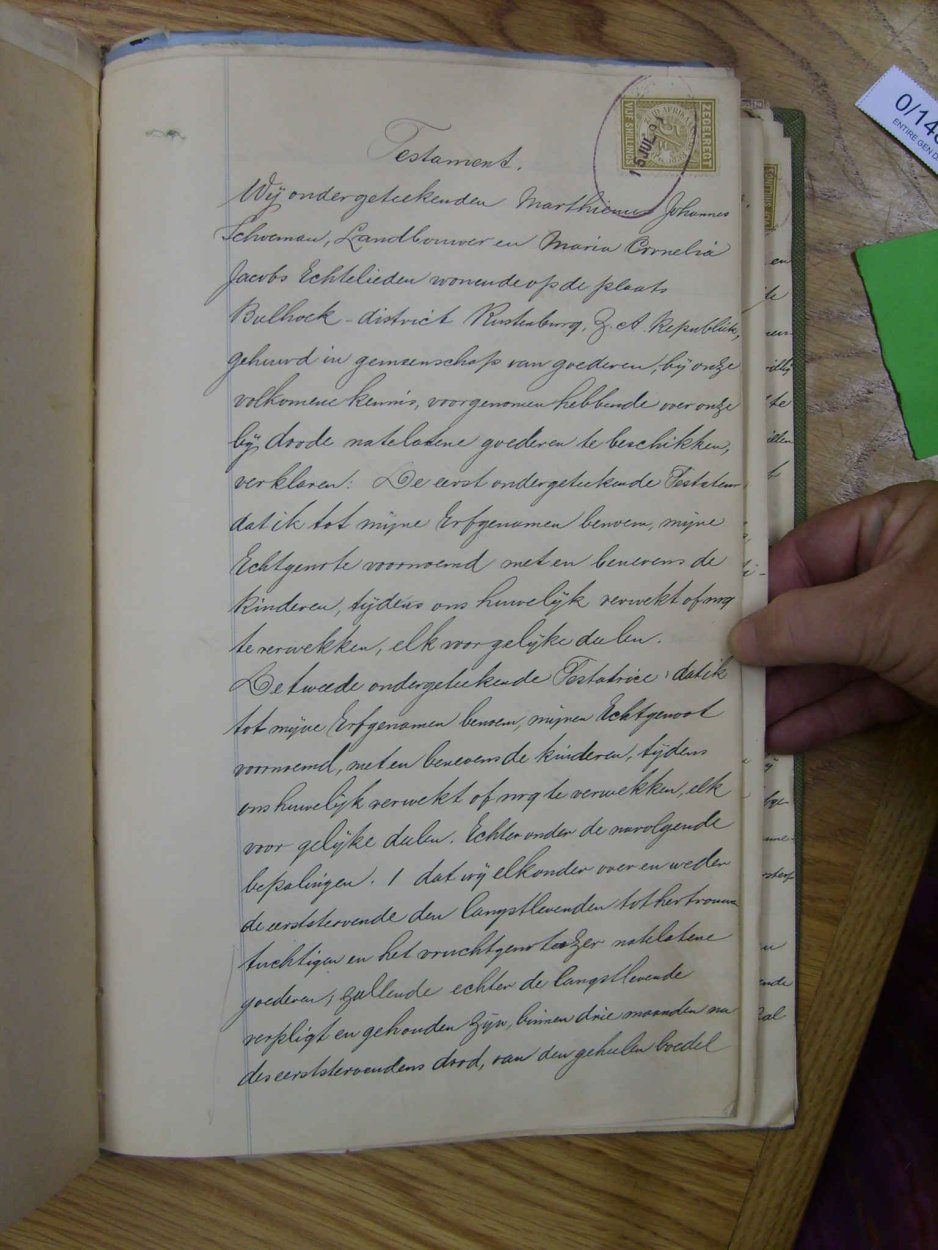 ZEGELRECHT
VIJF SHILLINGS
0/14
ENTIRE GEN.D
Testament.
Wij ondergeteekenden Marthienus Johannes
Schoeman, Landbouwer en Maria Cornelia
Jacobs Echtelieden wonende op de plaats
Bulhoek - district Rustenburg, Z. A. Republiek,
gehuwd in gemeenschap van goederen, bij onze
volkomene kennis, voorgenomen hebbende over onze
bij doode natelatene goederen te beschikken,
verklaren: De eerst ondergeteekende Testateur
dat ik tot mijne Erfgenamen benoem, mijne
Echtgenote voornoemd met en benevens de
kinderen, tijdens ons huwelijk verwekt of nog
te verwekken, elk voor gelijke deelen.
De tweede ondergeteekende Testatrice: dat ik
tot mijne Erfgenamen benoem, mijnen Echtgenoot
voornoemd, met en benevens de kinderen, tijdens
ons huwelijk verwekt of nog te verwekken, elk
voor gelijke deelen. Echter onder de navolgende
bepalingen. 1 dat wij elkander over en weder
de eerststervende den langstlevenden tot hertrouwen
tuchtigen en het vruchtgenot onzer natelatene
goederen; zullende echter de langstlevende
verpligt en gehouden zijn, binnen drie maanden na
des eerststervendens dood, van den geheelen boedel